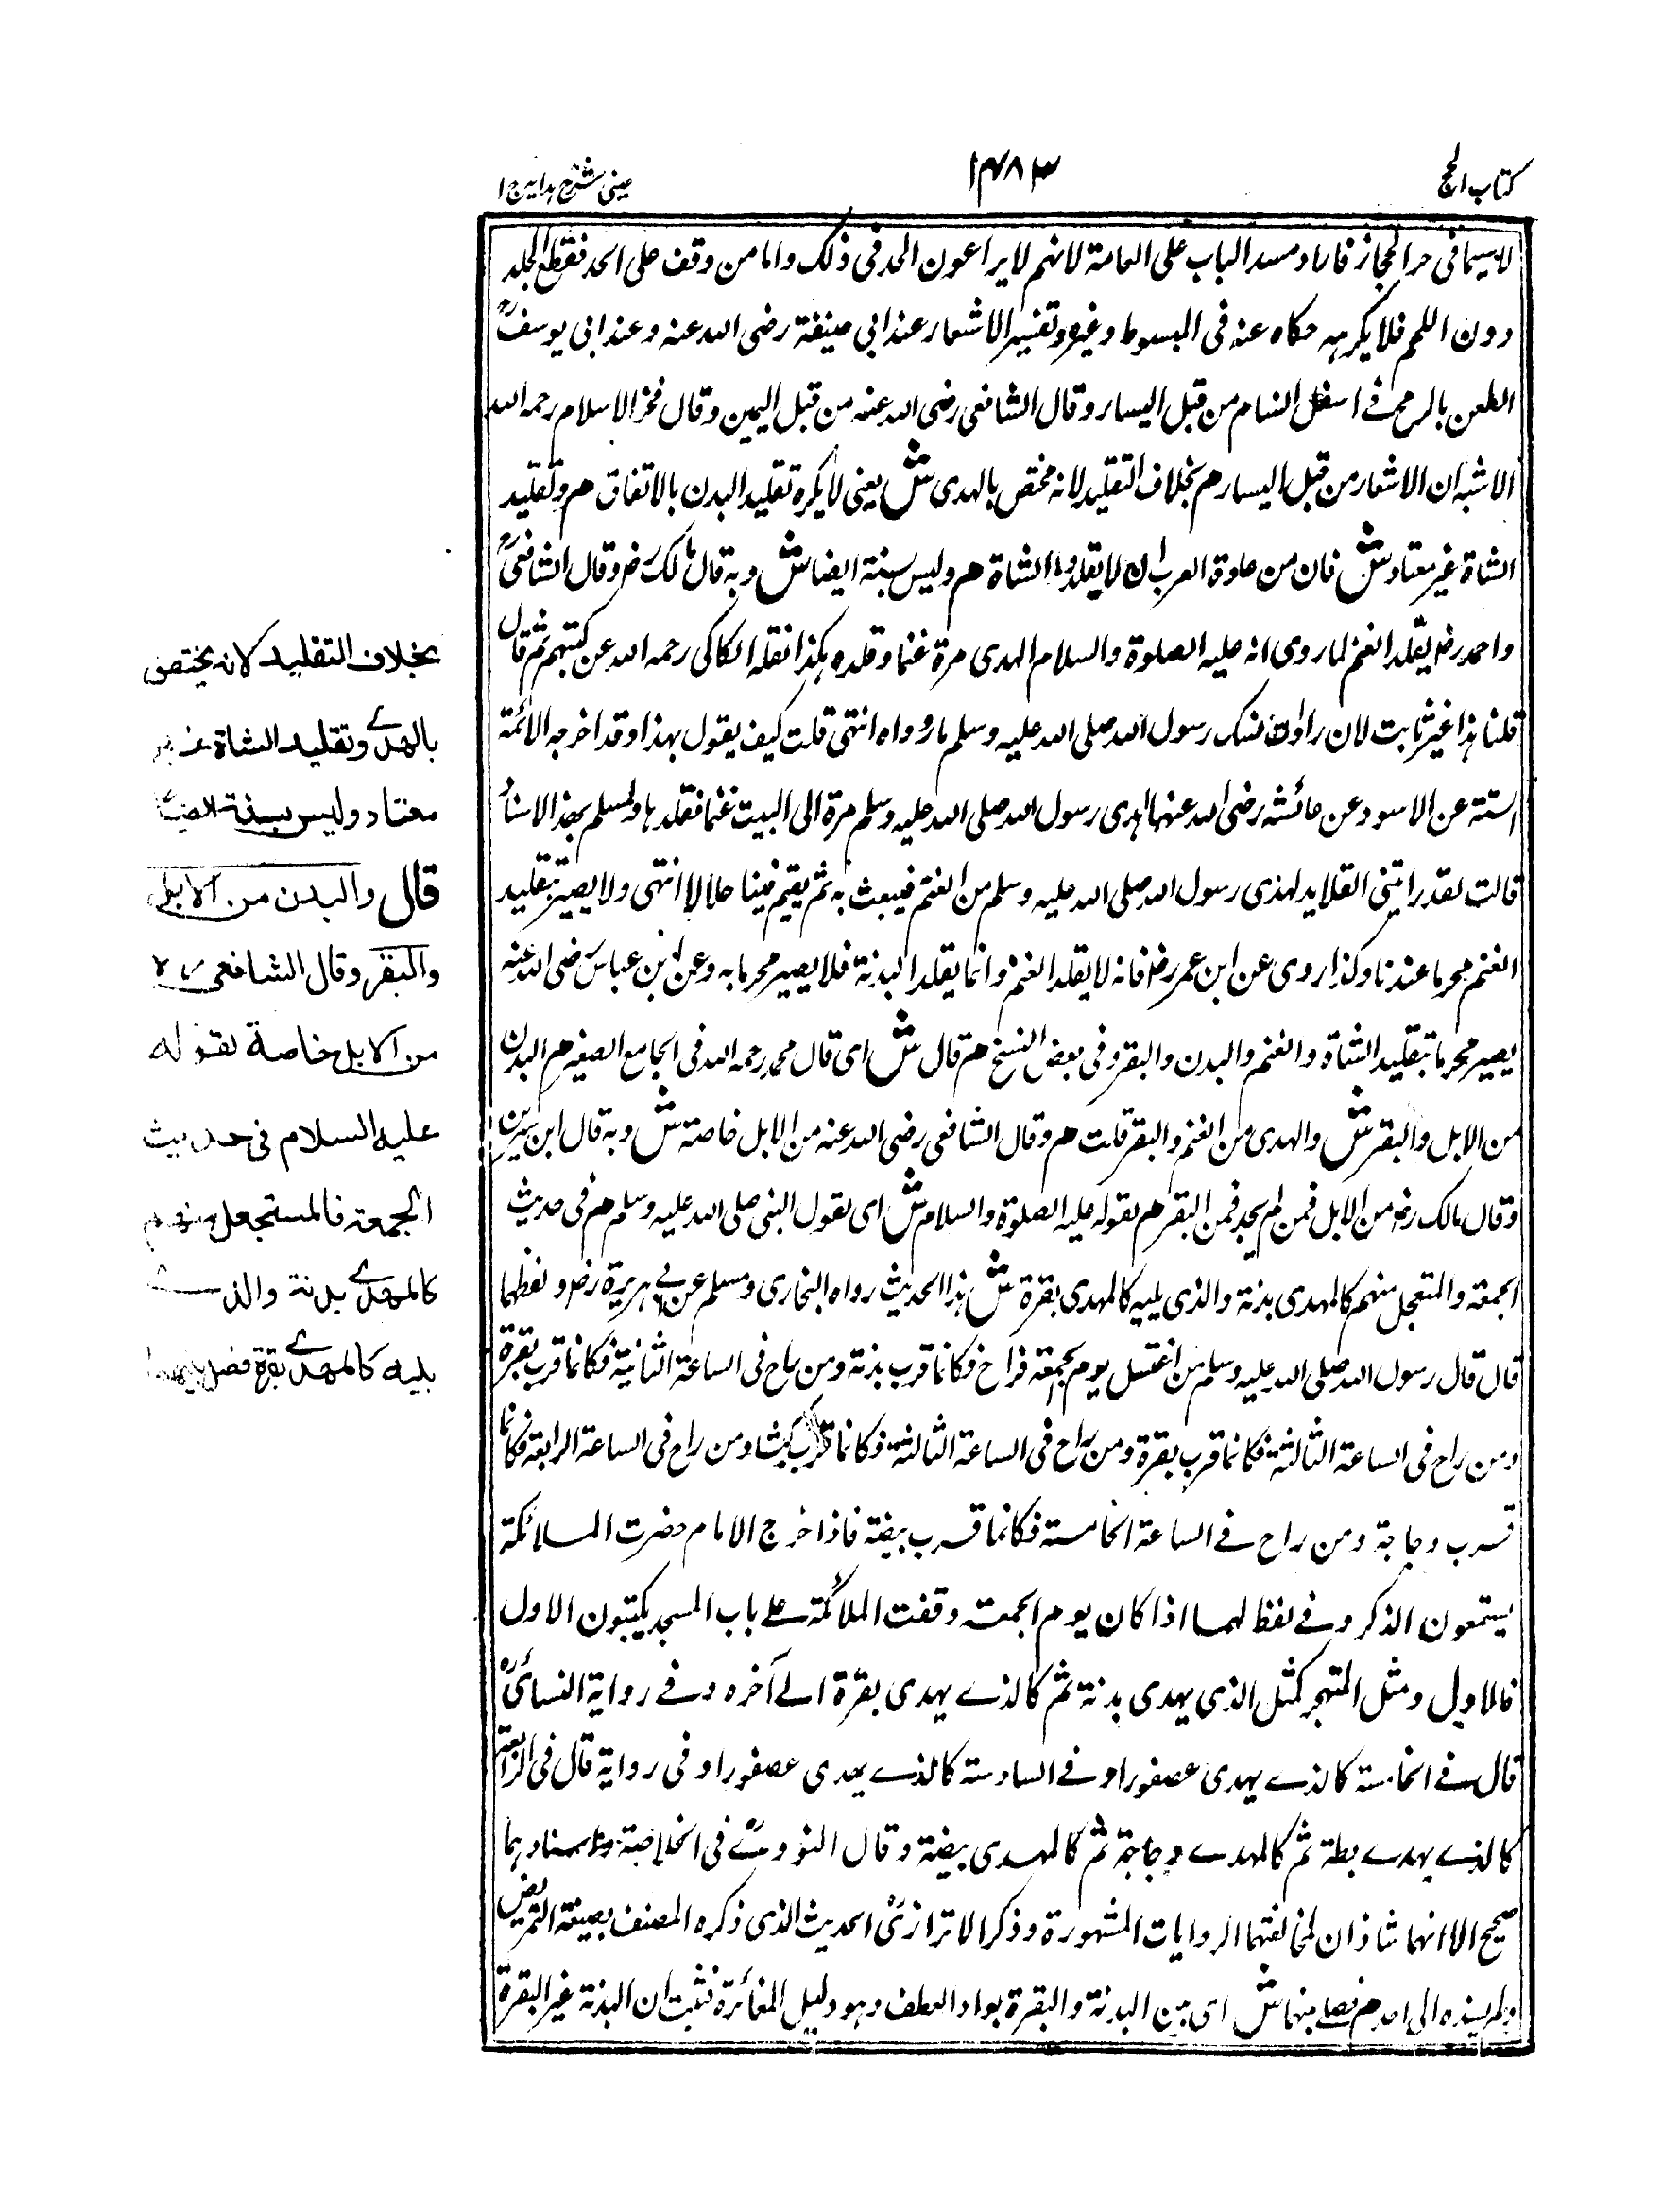 كتاب الحج
١٤٨٣
عينى شرح هدايه ج ١
لاسيما فى حر الحجاز فاراد سد الباب على العامة لانهم لا يراعون الحد فى ذلك واما من وقف على الحد فقطع الجلد
دون اللحم فلا يكرهه حكاه عنه فى المبسوط وغيره وتفسير الاشعار عند ابى حنيفة رضى الله عنه وعند ابى يوسفؒ
الطعن بالرمح فى اسفل السنام من قبل اليسار وقال الشافعى رضى الله عنه من قبل اليمين وقال فخر الاسلام رحمه الله
الاشبه ان الاشعار من قبل اليسار هم بخلاف التقليد لانه مختص بالهدى ش يعنى لا يكره تقليد البدن بالاتفاق هم وتقليد
الشاة غير معتاد ش فان من عادة العرب ان لا يقلدوا الشاة هم وليس بسنة ايضا ش وبه قال مالك رض وقال الشافعىؒ
واحمد رض يقلد الغنم لما روى انه عليه الصلوة والسلام اهدى مرة غنما وقلده هكذا نقله الكاكى رحمه الله عن كتبهم ثم قال
قلنا هذا غير ثابت لان راوى نسك رسول الله صلى الله عليه وسلم ما رواه انتهى قلت كيف يقول بهذا وقد اخرجه الائمة
الستة عن الاسود عن عائشة رضى الله عنها اهدى رسول الله صلى الله عليه وسلم مرة الى البيت غنما فقلدها ولمسلم بهذا الاسناد
قالت لقد رايتنى القلايد لهدى رسول الله صلى الله عليه وسلم من الغنم فيبعث به ثم يقيم فينا حلالا انتهى ولا يصير بتقليد
الغنم محرما عندنا وكذا روى عن ابن عمر رض فانه لا يقلد الغنم وانما يقلد البدنة فلا يصير محرما به وعن ابن عباس رضى الله عنه
يصير محرما بتقليد الشاة والغنم والبدن والبقر وفى بعض النسخ هم قال ش اى قال محمد رحمه الله فى الجامع الصغير هم البدن
من الابل والبقر ش والهدى من الغنم والبقر قلت هم وقال الشافعى رضى الله عنه من الابل خاصة ش وبه قال ابن سيرين
وقال مالك رض من الابل فمن لم يجد فمن البقر هم لقوله عليه الصلوة والسلام ش اى لقول النبى صلى الله عليه وسلم هم فى حديث
الجمعة والمتعجل منهم كالمهدى بدنة والذى يليه كالمهدى بقرة ش هذا الحديث رواه البخارى ومسلم عن ابى هريرة رض ولفظهما
قال قال رسول الله صلى الله عليه وسلم من اغتسل يوم الجمعة فراح فكانما قرب بدنة ومن راح فى الساعة الثانية فكانما قرب بقرة
ومن راح فى الساعة الثالثة فكانما قرب بقرة ومن راح فى الساعة الثالثة فكانما قرب كبشا ومن راح فى الساعة الرابعة فكانما
قرب دجاجة ومن راح فى الساعة الخامسة فكانما قرب بيضة فاذا خرج الامام حضرت الملائكة
يستمعون الذكر وفى لفظ لهما اذا كان يوم الجمعة وقفت الملائكة على باب المسجد يكتبون الاول
فالاول ومثل المتهجر كمثل الذى يهدى بدنة ثم كالذى يهدى بقرة الى آخره وفى رواية النسائىؒ
قال فى الخامسة كالذى يهدى عصفورا وفى السادسة كالذى يهدى عصفورا وفى رواية قال فى الرابعة
كالذى يهدى بطة ثم كالمهدى دجاجة ثم كالمهدى بيضة وقال النووىؒ فى الخلاصة واسنادهما
صحيح الا انهما شاذان لمخالفتهما الروايات المشهورة وذكر الاترازىؒ الحديث الذى ذكره المصنف بصيغة التمريض
ولم يسنده الى احد هم فصل بينهما ش اى بين البدنة والبقرة بواو العطف وهو دليل المغائرة فثبت ان البدنة غير البقرة
بخلاف التقليد لانه يختص
بالهدى وتقليد الشاة غير
معتاد وليس بسنة ايضا
قال والبدن من الابل
والبقر وقال الشافعى رح
من الابل خاصة لقوله
عليه السلام فى حديث
الجمعة فالمستعجل منهم
كالمهدى بدنة والذى
يليه كالمهدى بقرة فصل بينهما